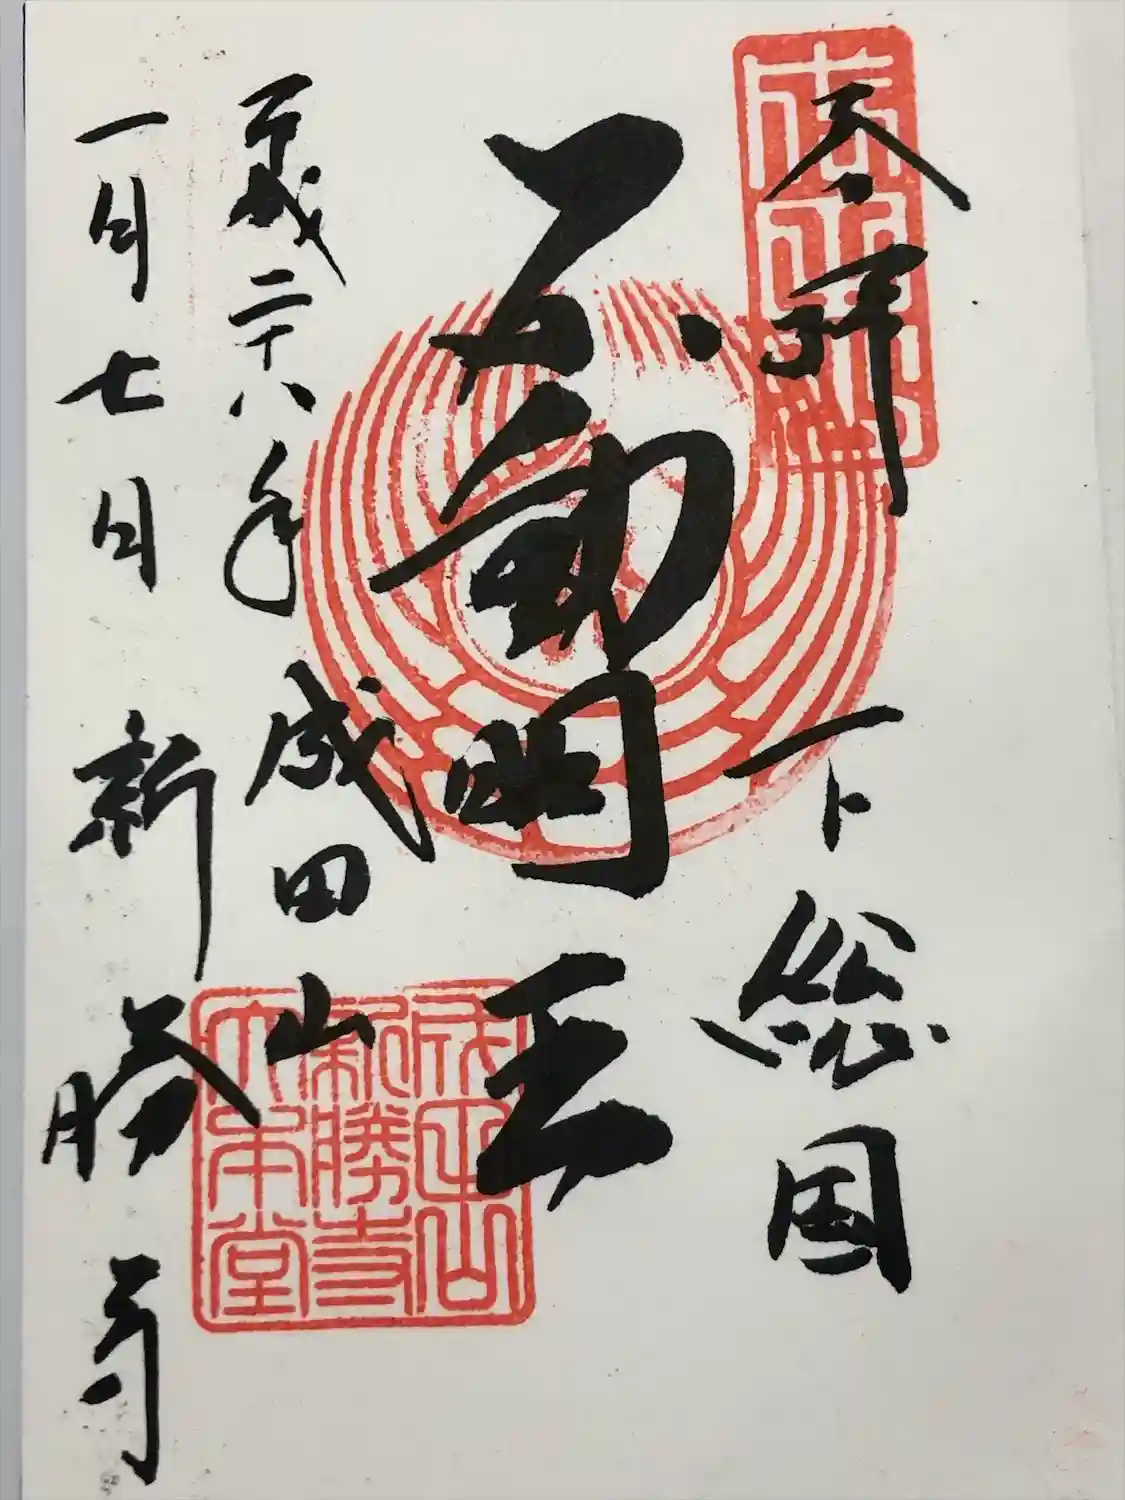 奉拝 下総国
不動明王
平成二十八年 成田山
一月七日 新勝寺
成田山
新勝寺
大本堂